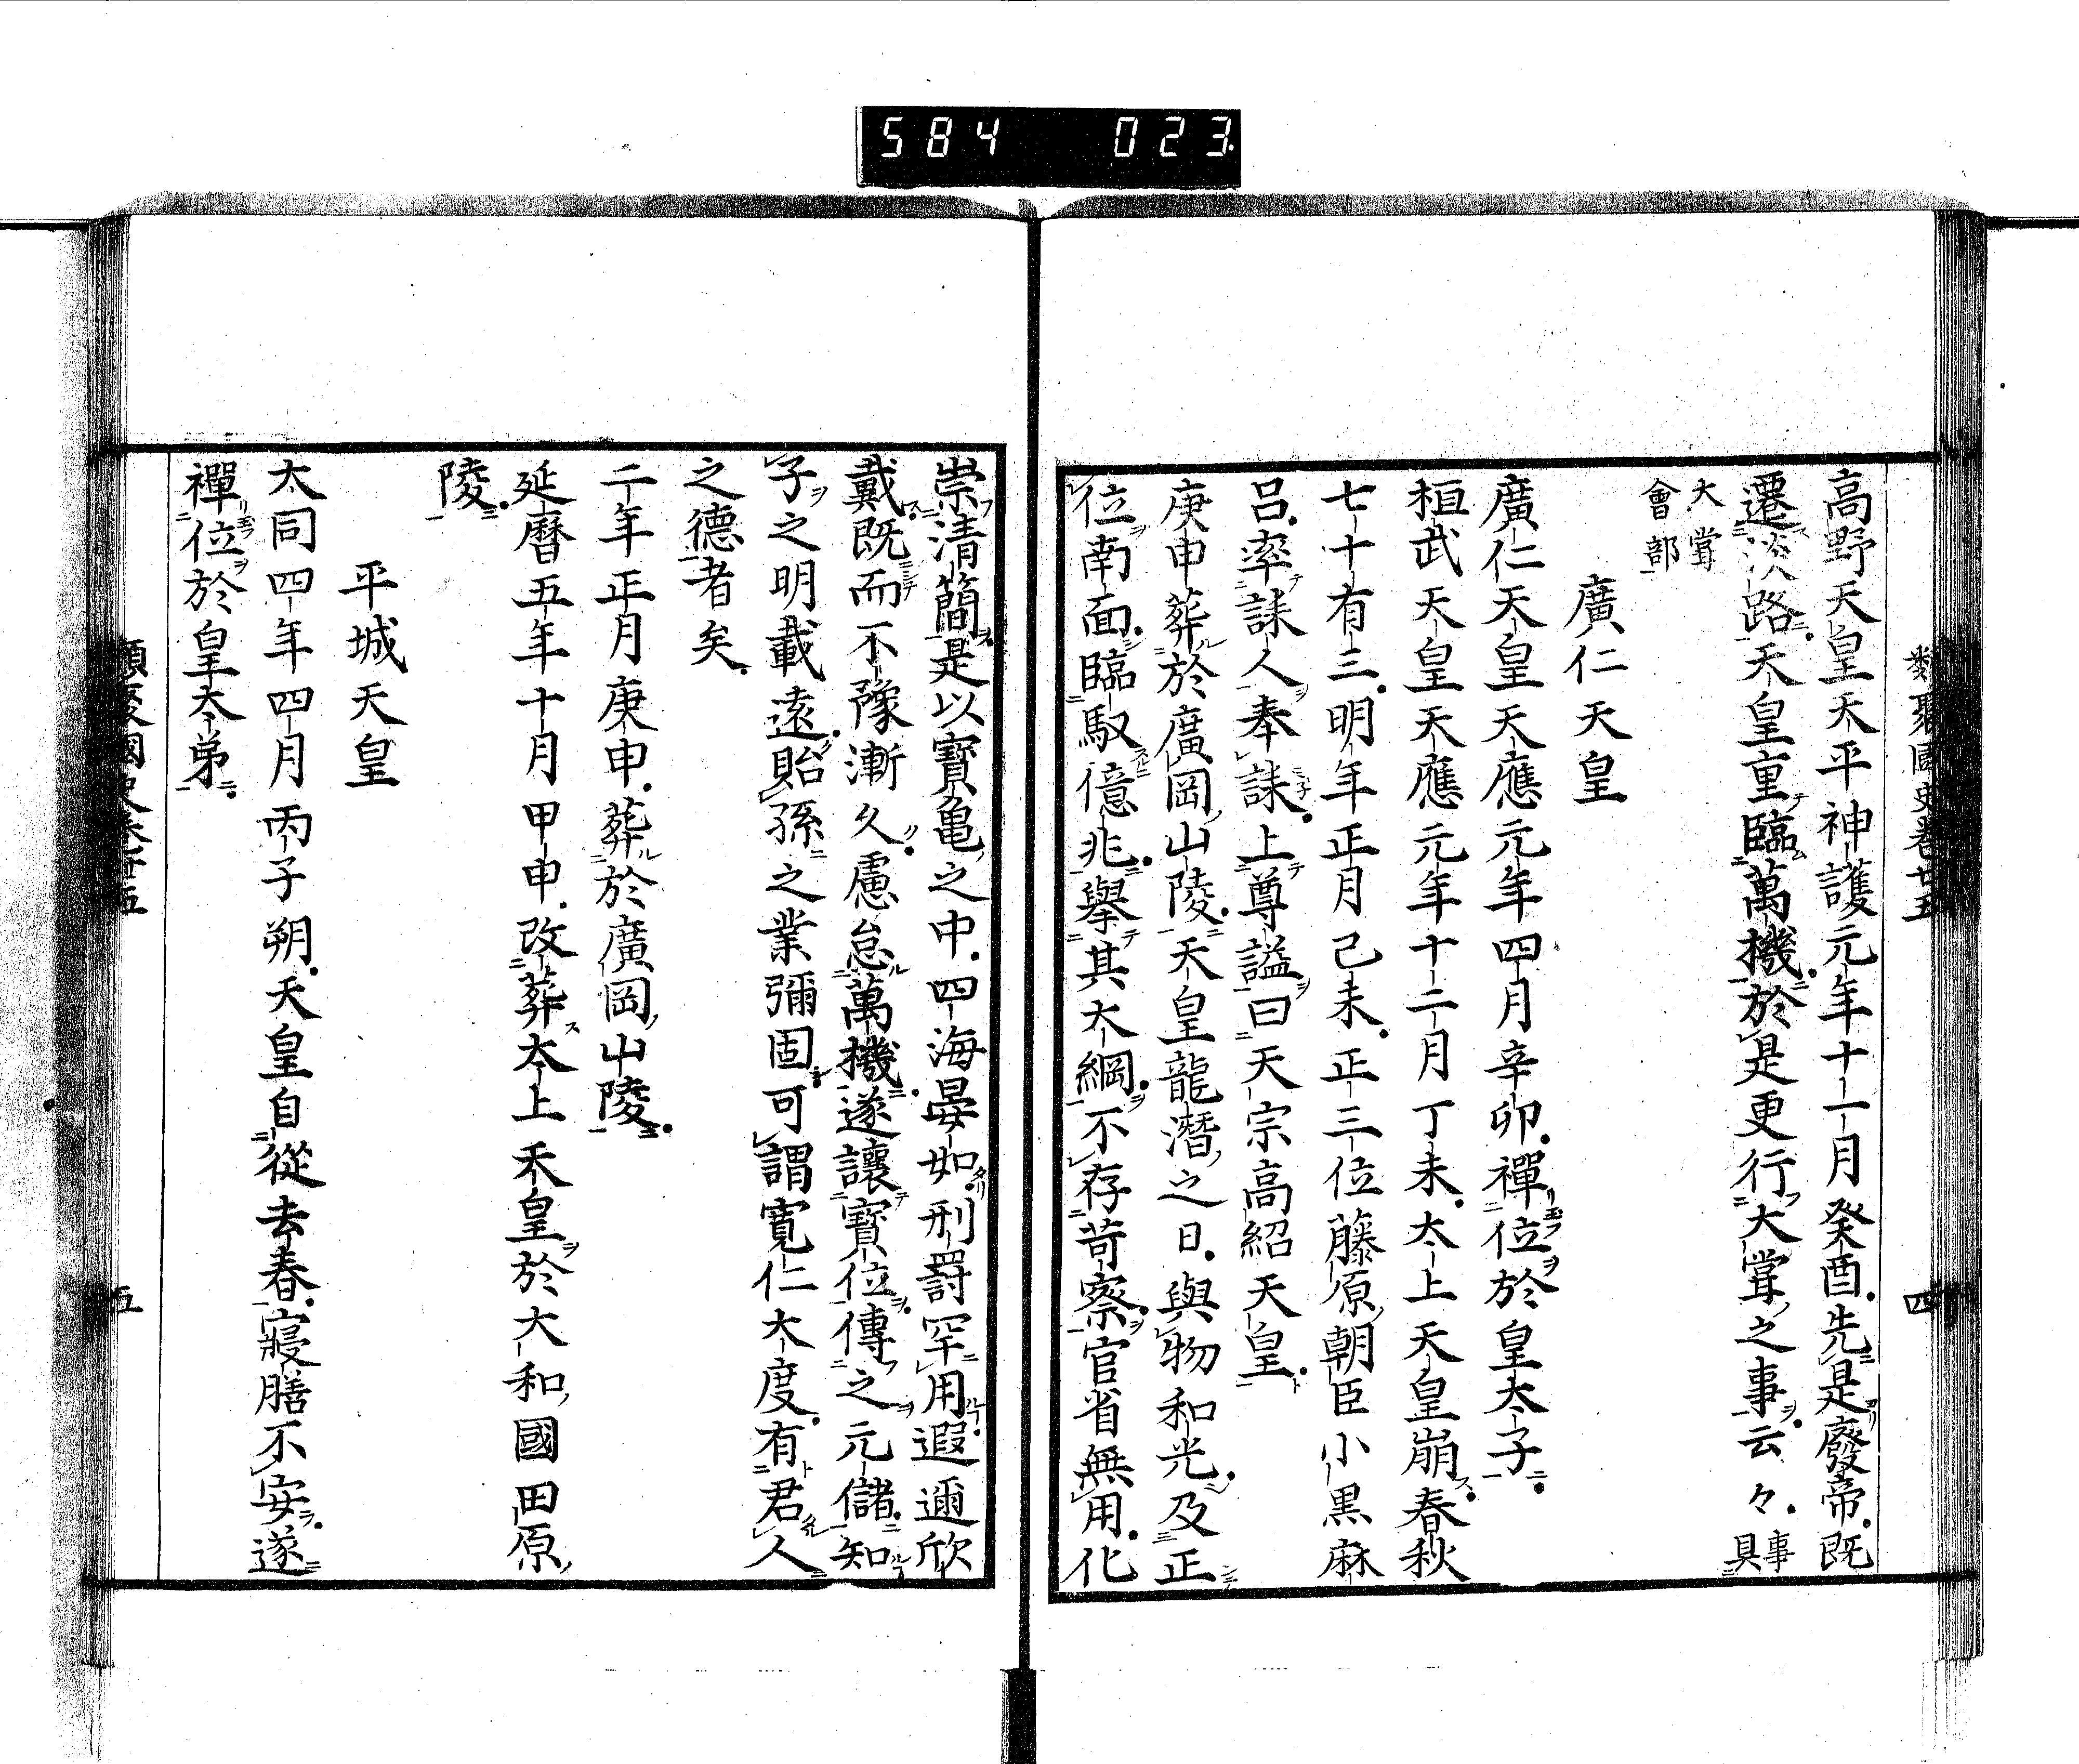 584 023
類聚國史卷廿五 四
高野天皇天平神護元年十一月癸酉先是廢帝既
遷淡路天皇重臨萬機於是更行大嘗之事云々事具
大嘗
會部
廣仁天皇
廣仁天皇天應元年四月辛卯禪位於皇太子
桓武天皇天應元年十二月丁未太上天皇崩春秋
七十有三明年正月己未正三位藤原朝臣小黒麻
呂率誄人奉誄上尊謚曰天宗高紹天皇
庚申葬於廣岡山陵天皇龍潛之日與物和光及正
位南面臨馭億兆擧其大綱不存苛察官省無用化
崇清簡是以寳龜之中四海晏如刑罸罕用遐邇欣
戴既而不豫漸久慮怠萬機遂讓寳位傳之元儲知
子之明載遠貽孫之業彌固可謂寛仁大度有君人
之德者矣
二年正月庚申葬於廣岡山陵
延暦五年十月甲申改葬太上天皇於大和國田原
陵
平城天皇
大同四年四月丙子朔天皇自從去春寢膳不安遂
禪位於皇太弟
類聚國史卷廿五 五